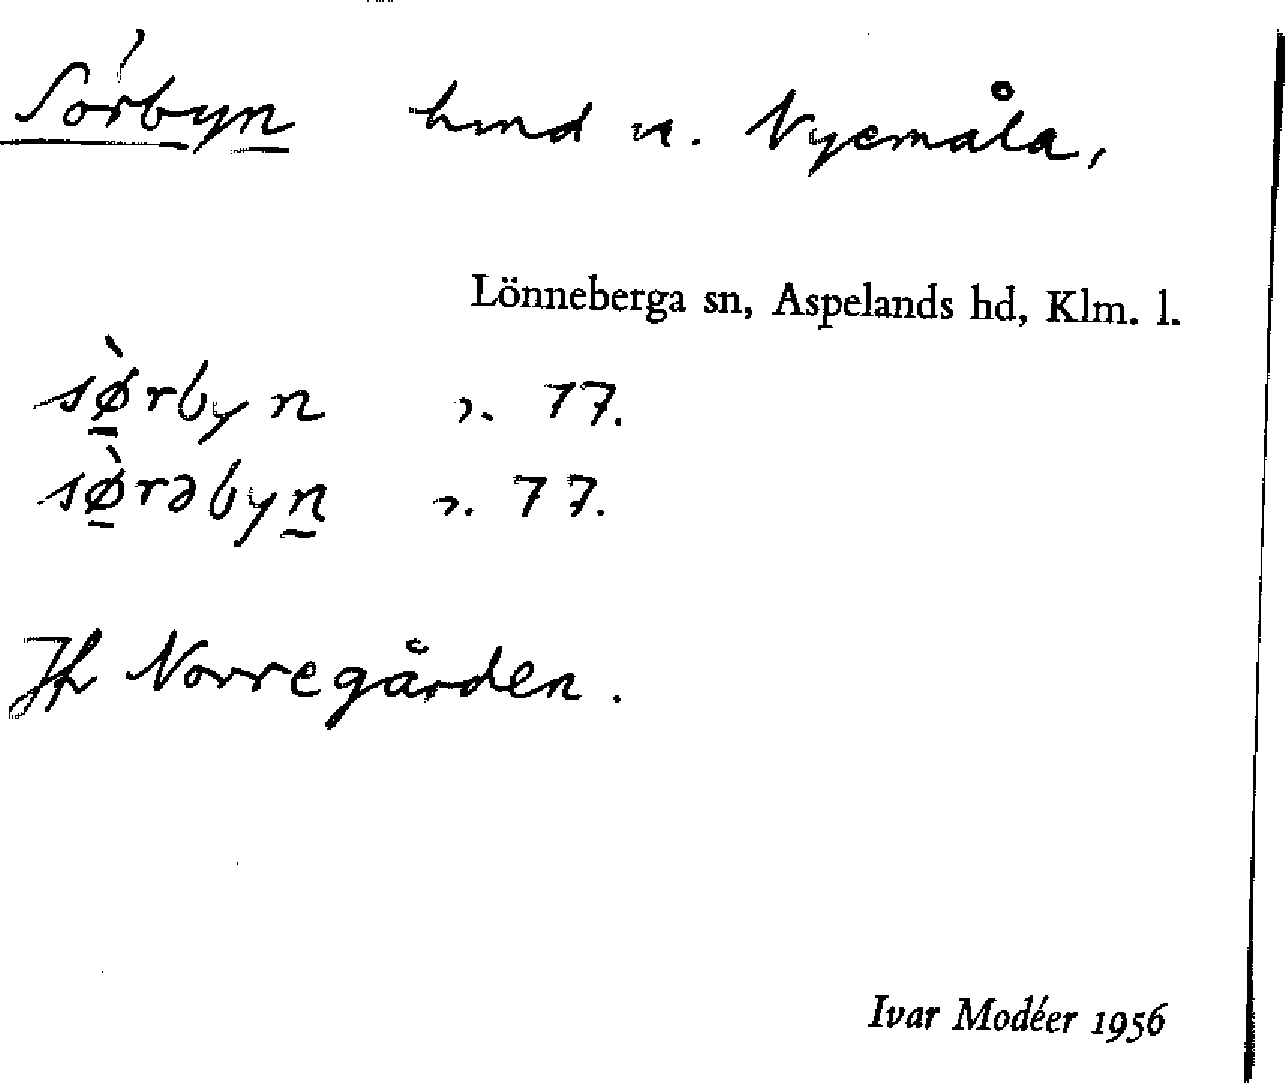 Sörbyn hmd u. Nyemåla,
Lönneberga sn, Aspelands hd, Klm. l.
sø̀rbyn 77.
sø̀rəbyn 77.
Jfr Norregården.
Ivar Modéer 1956